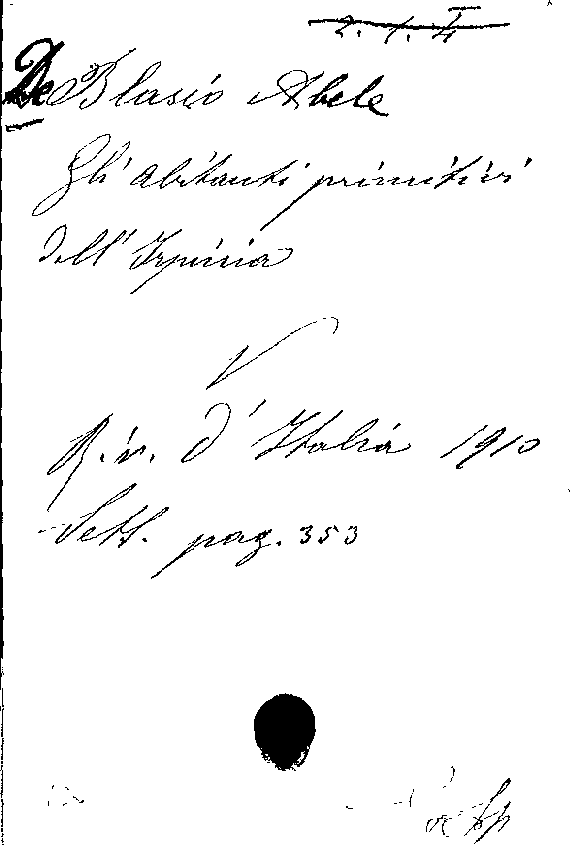 2. 1. II
De Blasio Abele
Gli abitanti primitivi
dell'Irpinia
V
Riv. d'Italia 1910
Sett. pag. 353